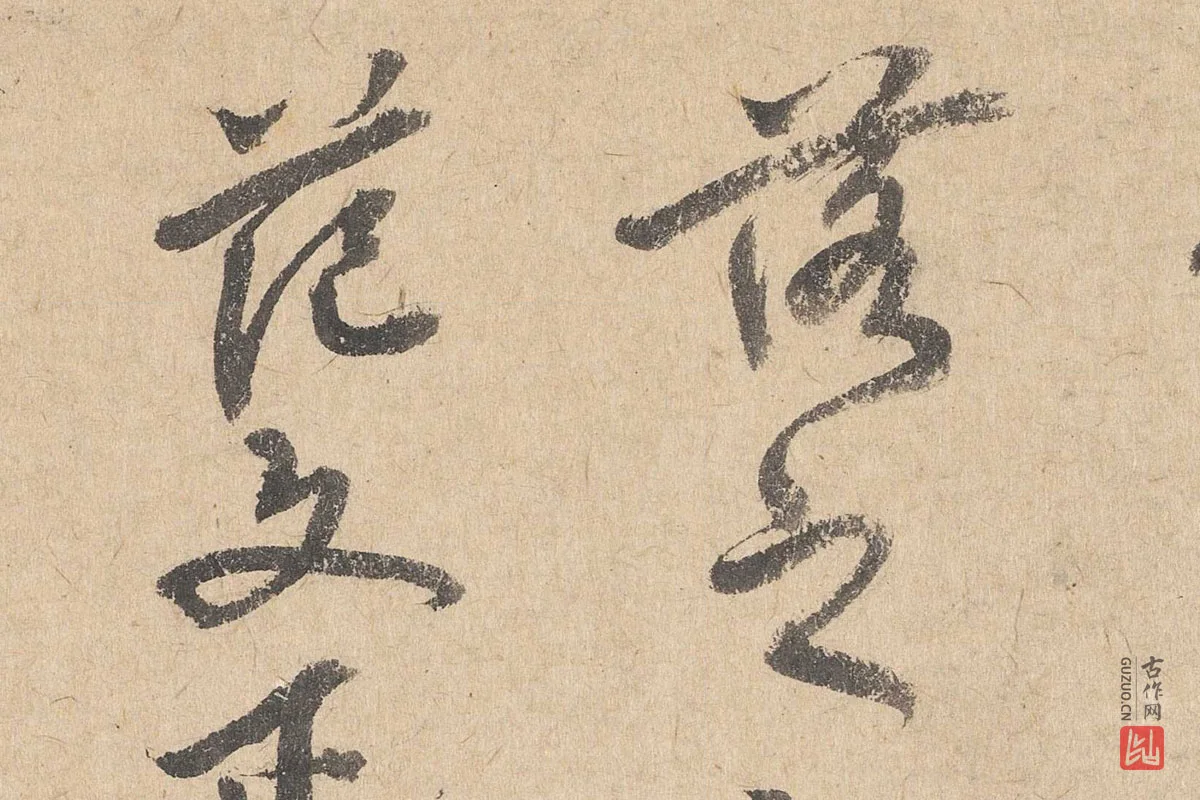 落之
范文正
古作网
GUZUO.CN